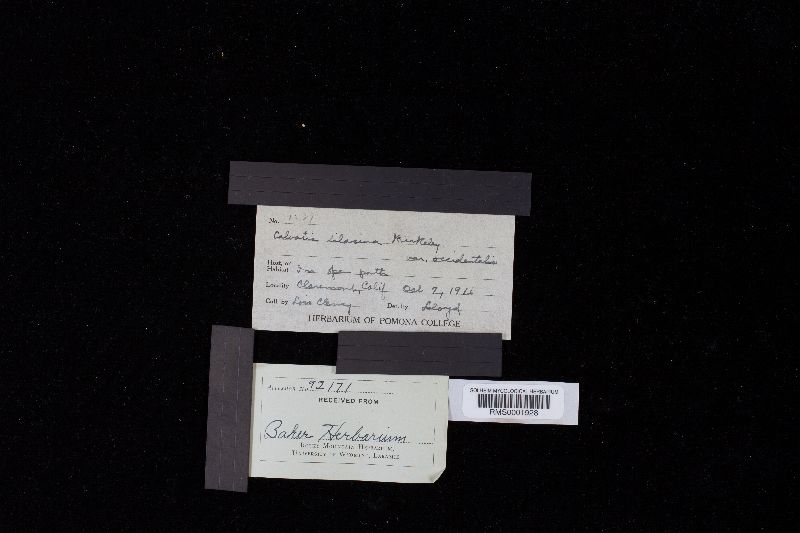 No.
Calvatia lilacina Berkeley
var. occidentalis
Host, or
Habitat In
Locality Claremont, Calif Oct 7, 19
Coll. by Det. by Lloyd
HERBARIUM OF POMONA COLLEGE
Accession No. 92171
RECEIVED FROM
Baker Herbarium
ROCKY MOUNTAIN HERBARIUM,
UNIVERSITY OF WYOMING, LARAMIE
SOLHEIM MYCOLOGICAL HERBARIUM
RMS0001928